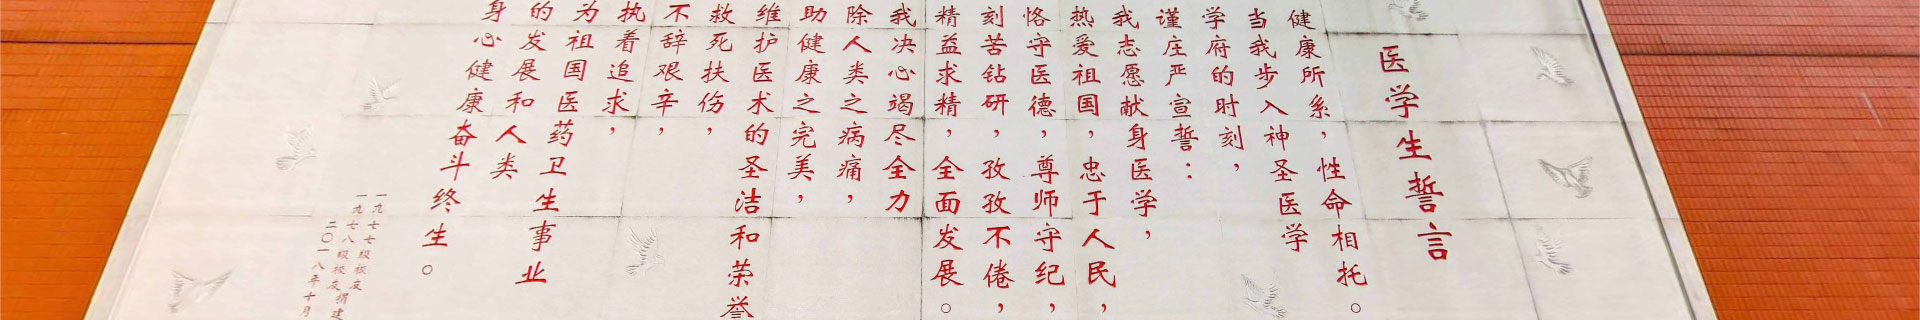 医学生誓言
健康所系，性命相托。
当我步入神圣医学
学府的时刻，
谨庄严宣誓：
我志愿献身医学，
热爱祖国，忠于人民，
恪守医德，尊师守纪，
刻苦钻研，孜孜不倦，
精益求精，全面发展。
我决心竭尽全力
除人类之病痛，
助健康之完美，
维护医术的圣洁和荣誉
救死扶伤，
不辞艰辛，
执着追求，
为祖国医药卫生事业
的发展和人类
身心健康奋斗终生。
一九七七级校友
一九七八级校友捐建
二〇一八年十月